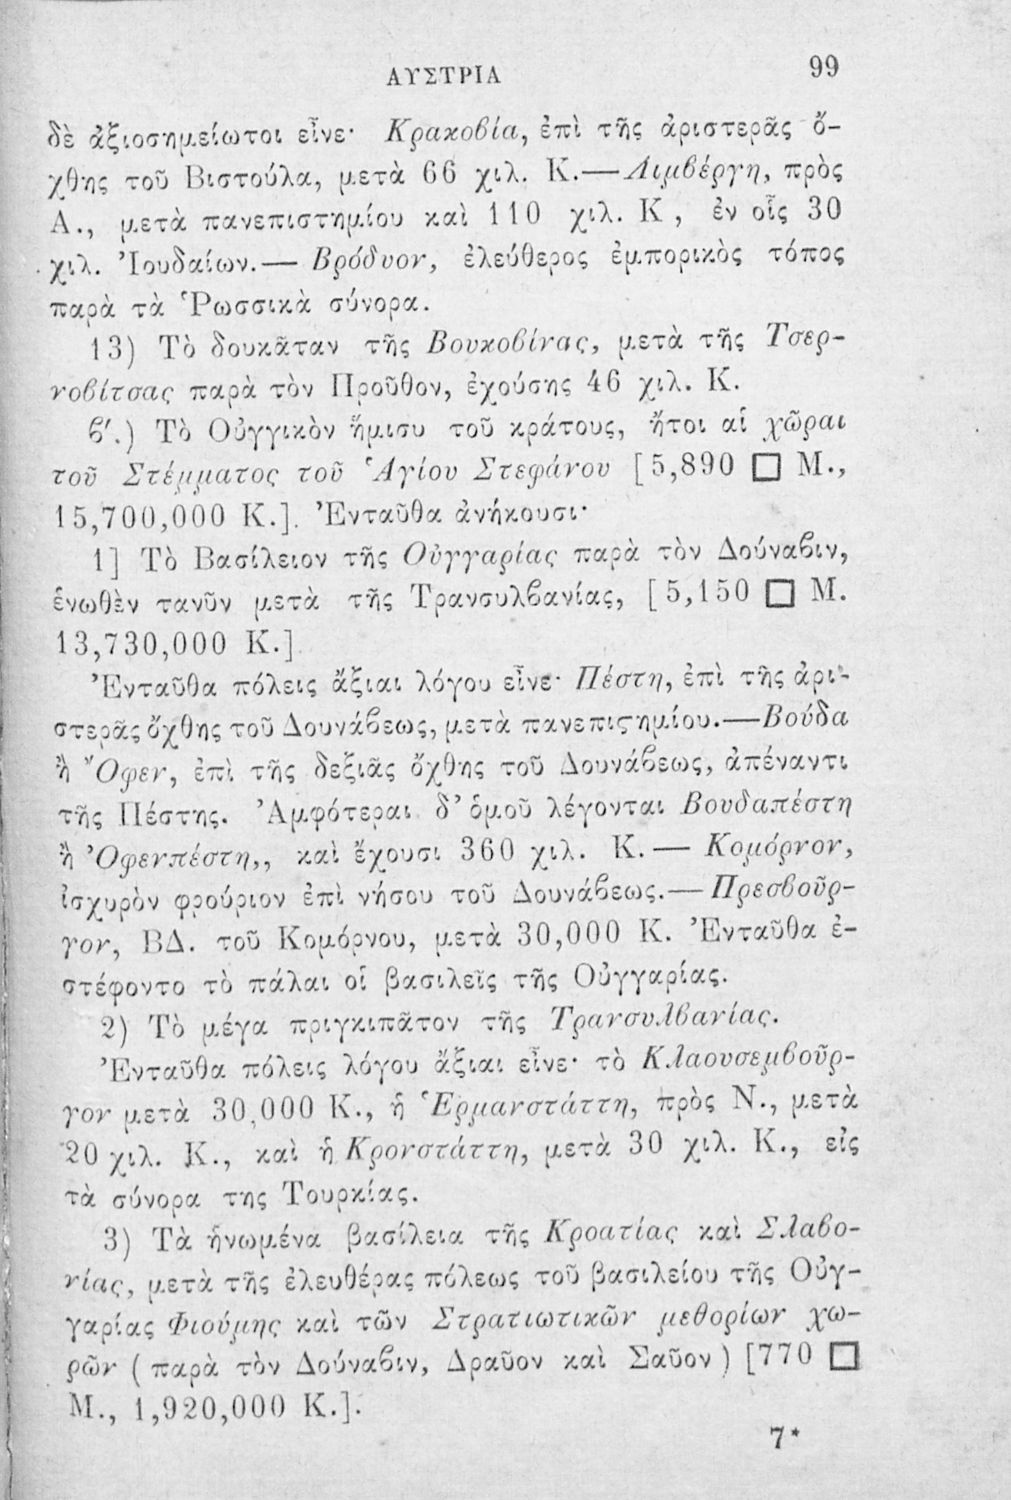 ΑΥΣΤΡΙΑ 99
δὲ ἀξιοσημείωτοι εἶνε· Κρακοβία, ἐπὶ τῆς ἀριστερᾶς ὄ-
χθης τοῦ Βιστούλα, μετὰ 66 χιλ. Κ.—Λιμβέργη, πρὸς
Α., μετὰ πανεπιστημίου καὶ 110 χιλ. Κ, ἐν οἷς 30
χιλ. Ἰουδαίων.— Βρόδυον, ἐλεύθερος ἐμπορικὸς τόπος
παρὰ τὰ Ῥωσσικὰ σύνορα.
13) Τὸ δουκᾶταν τῆς Βουκοβίνας, μετὰ τῆς Τσερ-
νοβίτσας παρὰ τὸν Προῦθον, ἐχούσης 46 χιλ. Κ.
ϐ′.) Τὸ Οὑγγικὸν ἥμισυ τοῦ κράτους, ἤτοι αἱ χῶραι
τοῦ Στέμματος τοῦ Ἁγίου Στεφάνου [5,890 □ Μ.,
15,700,000 Κ.]. Ἐνταῦθα ἀνήκουσι·
1] Τὸ Βασίλειον τῆς Οὑγγαρίας παρὰ τὸν Δούναβιν,
ἑνωθὲν τανῦν μετὰ τῆς Τρανσυλβανίας, [5,150 □ Μ.
13,730,000 Κ.]
Ἐνταῦθα πόλεις ἄξιαι λόγου εἶνε· Πέστη, ἐπὶ τῆς ἀρι-
στερᾶς ὄχθης τοῦ Δουνάβεως, μετὰ πανεπιςημίου.—Βούδα
ἢ Ὄφεν, ἐπὶ τῆς δεξιᾶς ὄχθης τοῦ Δουνάβεως, ἀπέναντι
τῆς Πέστης. Ἀμφότεραι δ' ὁμοῦ λέγονται Βουδαπέστη
ἢ Ὀφενπέστη,, καὶ ἔχουσι 360 χιλ. Κ.— Κομόρνον,
ἰσχυρὸν φρούριον ἐπὶ νήσου τοῦ Δουνάβεως.—Πρεσβοῦρ-
γον, ΒΔ. τοῦ Κομόρνου, μετὰ 30,000 Κ. Ἐνταῦθα ἐ-
στέφοντο τὸ πάλαι οἱ βασιλεῖς τῆς Οὑγγαρίας.
2) Τὸ μέγα πριγκιπᾶτον τῆς Τρανσυλβανίας.
Ἐνταῦθα πόλεις λόγου ἄξιαι εἶνε· τὸ Κλαουσεμβοῦρ-
γον μετὰ 30,000 Κ., ἡ Ἑρμανστάττη, πρὸς Ν., μετὰ
20 χιλ. Κ., καὶ ἡ Κρονστάττη, μετὰ 30 χιλ. Κ., εἰς
τὰ σύνορα της Τουρκίας.
3) Τὰ ἡνωμένα βασίλεια τῆς Κροατίας καὶ Σλαβο-
νίας, μετὰ τῆς ἐλευθέρας πόλεως τοῦ βασιλείου τῆς Οὑγ-
γαρίας Φιούμης καὶ τῶν Στρατιωτικῶν μεθορίων χω-
ρῶν (παρὰ τὸν Δούναβιν, Δραῦον καὶ Σαῦον) [770 □
Μ., 1,920,000 Κ.].
7*